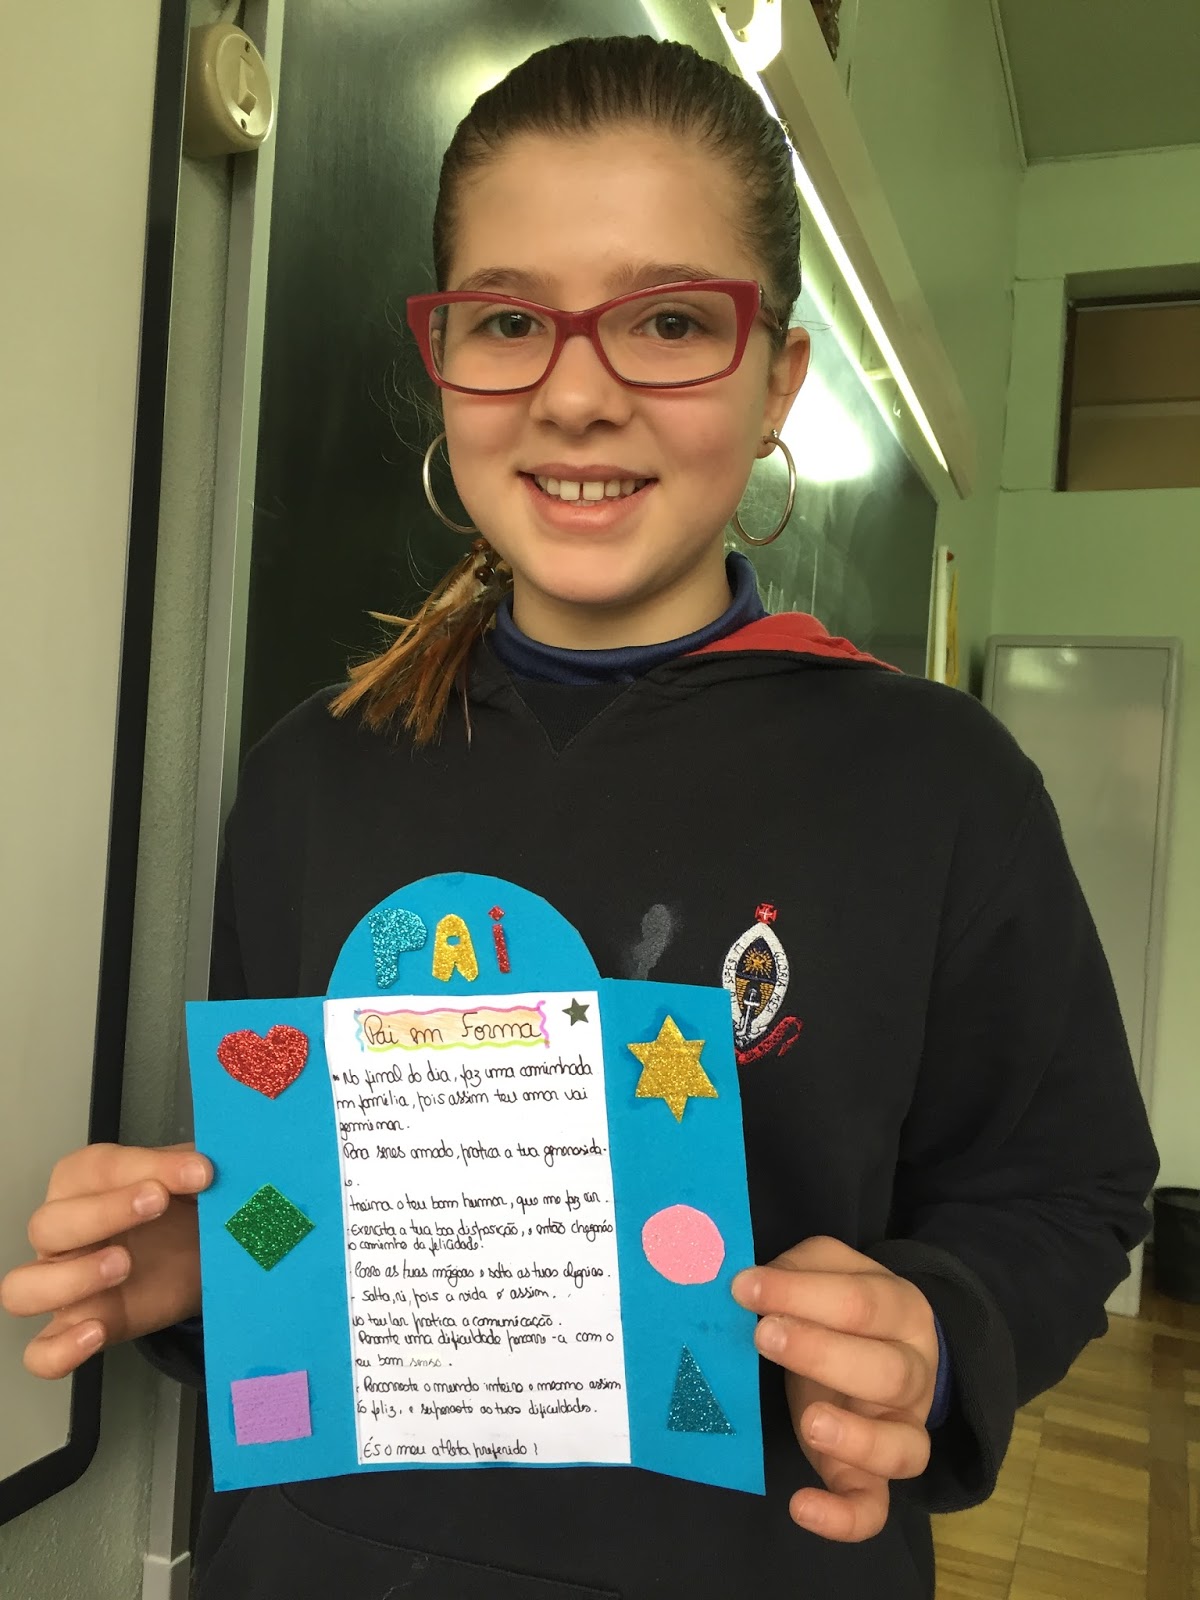 PAi
Pai em Forma
No final do dia, faz uma caminhada
em família, pois assim teu amor vai
germinar.
Para seres amado, pratica a tua generosida-
treina o teu bom humor, que me faz rir.
- Exercita a tua boa disposição, e então chegarás
o caminho da felicidade.
- Corre as tuas mágoas e salta as tuas alegrias.
- Salta, ri, pois a vida é assim.
teu lar pratica a comunicação.
Perante uma dificuldade percorre-a com o
eu bom senso.
- Percorreste o mundo inteiro e mesmo assim
feliz, e superaste as tuas dificuldades.
És o meu atleta preferido!